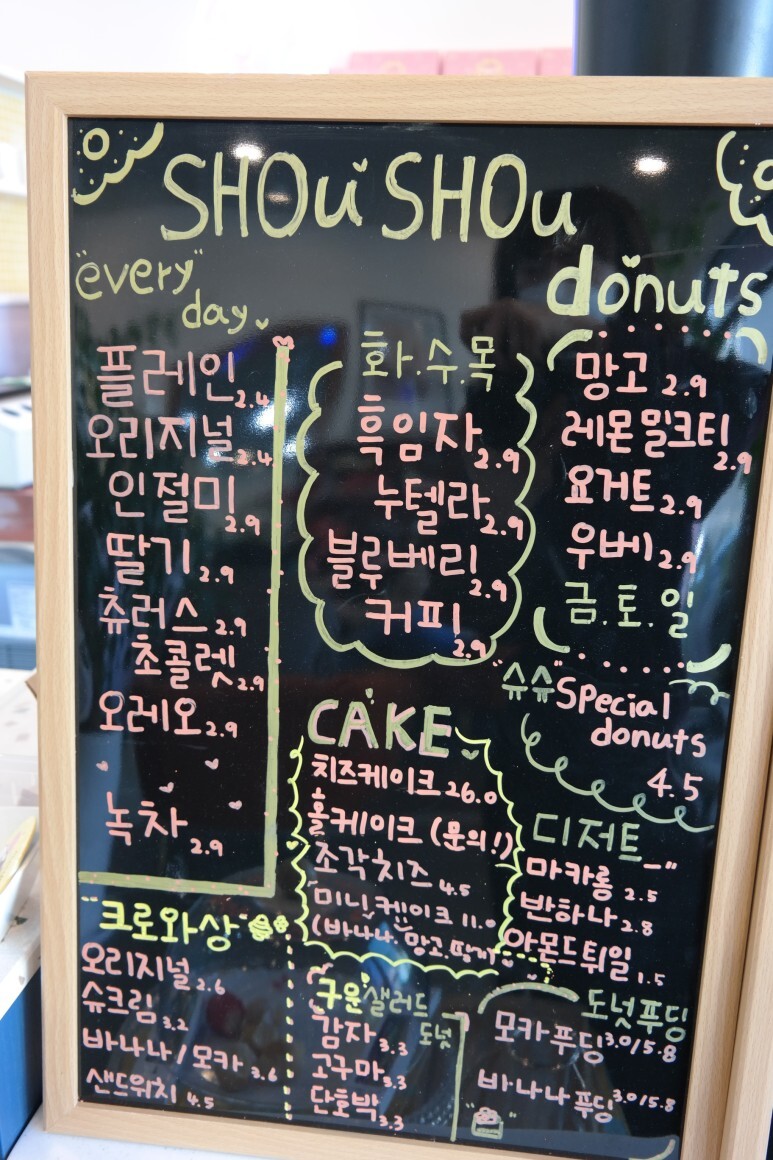 SHOU SHOU
donuts
"every"
day
플레인 2.4
오리지널 2.4
인절미 2.9
딸기 2.9
츄러스 2.9
초콜렛 2.9
오레오 2.9
녹차 2.9
화.수.목
흑임자 2.9
누텔라 2.9
블루베리 2.9
커피 2.9
망고 2.9
레몬밀크티 2.9
요거트 2.9
우베 2.9
금.토.일
"슈슈" Special
donuts
4.5
CAKE
치즈케이크 26.0
홀케이크 (문의!)
조각치즈 4.5
미니케이크 11.0
(바나나.망고.딸기
디저트
마카롱 2.5
반하나 2.8
아몬드튀일 1.5
"크로와상"
오리지널 2.6
슈크림 3.2
바나나/모카 3.6
샌드위치 4.5
구운샐러드
도넛
감자 3.3
고구마 3.3
단호박 3.3
도넛푸딩
모카푸딩 3.0/5.8
바나나푸딩 3.0/5.8